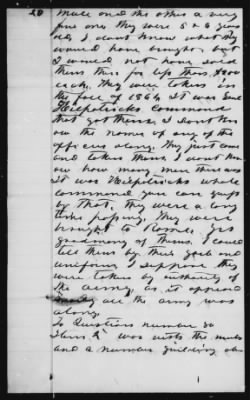 20 mule and the other a very
fine one. they were 5 & 6 years
old, I don't know what they
would have brought but
I would not have sold
them then for less than $200
each. They were taken in
the fall of 1864. It was Genl
Kilpatricks Command
that got them. I don't know
the names of any of the
officers along. They just came
and taken them. I don't know
how many men there was
It was Kilpatricks whole
command you can judge
by that, they were a long
time passing. They were
brought to Rome,
of them. I could
tell them by their garb and
uniform I suppose. they
were taken by authority of
the army, as it appeared
all the army was
along.
To Questions number 30
Item 2" was with the mules
and a number